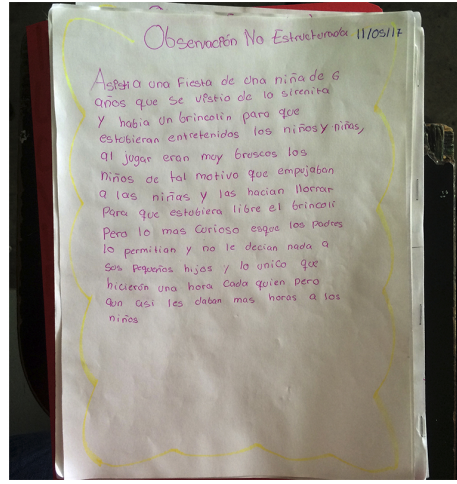 Observación No Estructurada 11/05/17
Asisti a una fiesta de una niña de 6
años que se vistio de la sirenita
y habia un brincolin para que
estubieran entretenidos los niños y niñas,
al jugar eran muy bruscos los
niños de tal motivo que empujaban
a las niñas y las hacian llorrar
para que estubiera libre el brincoli
pero lo mas curioso esque los padres
lo permitian y no le decian nada a
sus pequeños hijos y lo unico que
hicieron una hora cada quien pero
aun asi les daban mas horas a los
niños